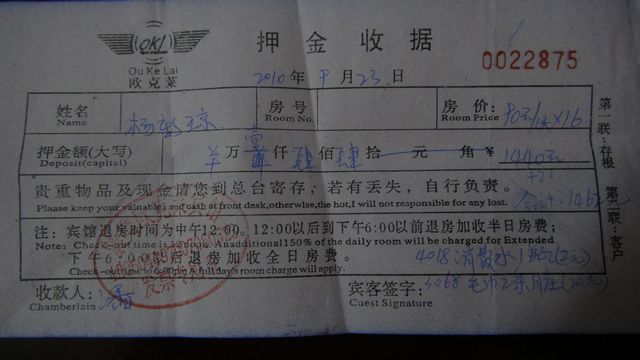 QKL
Ou Ke Lai
欧克莱
押金收据
0022875
2010年9月23日
姓名 杨 琼 房号 房价: 90元/天×16
Name Room No. Room Price
押金额(大写) 羊万壹仟肆佰肆拾 元 角 ¥ 1440元
Deposit(capital)
贵重物品及现金请您到总台寄存;若有丢失,自行负责。 合计:1462元
Please keep your valnables and cash at front desk,otherwise,the hot,I will not responsible for any lost.
注:宾馆退房时间为中午12:00。12:00以后到下午6:00以前退房加收半日房费;
Note: Check-out time is 12:noon. Anadditional150% of the daily room will be charged for Extended
下午6:00以后退房加收全日房费;
Check-outtime to 6:00pm A full day's room charge will apply.
4018消 水1瓶(2元)
收款人: 宾客签字: 5068 毛巾2条 (20元)
Chamberlain Cuest Signature
第一联:存根
第二联:客户